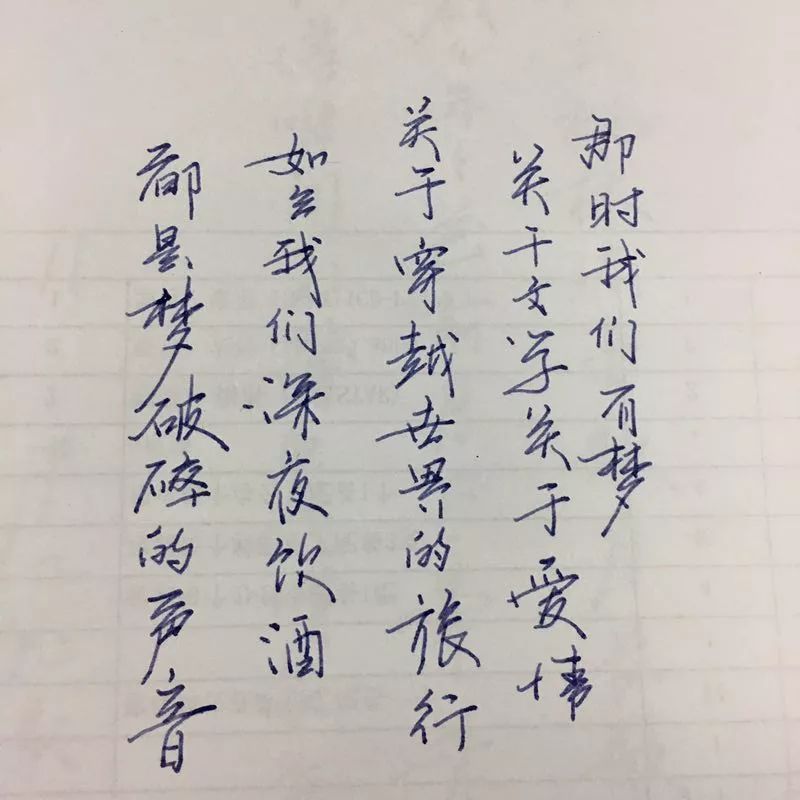 那时我们有梦
关于文学关于爱情
关于穿越世界的旅行
如今我们深夜饮酒
都是梦破碎的声音